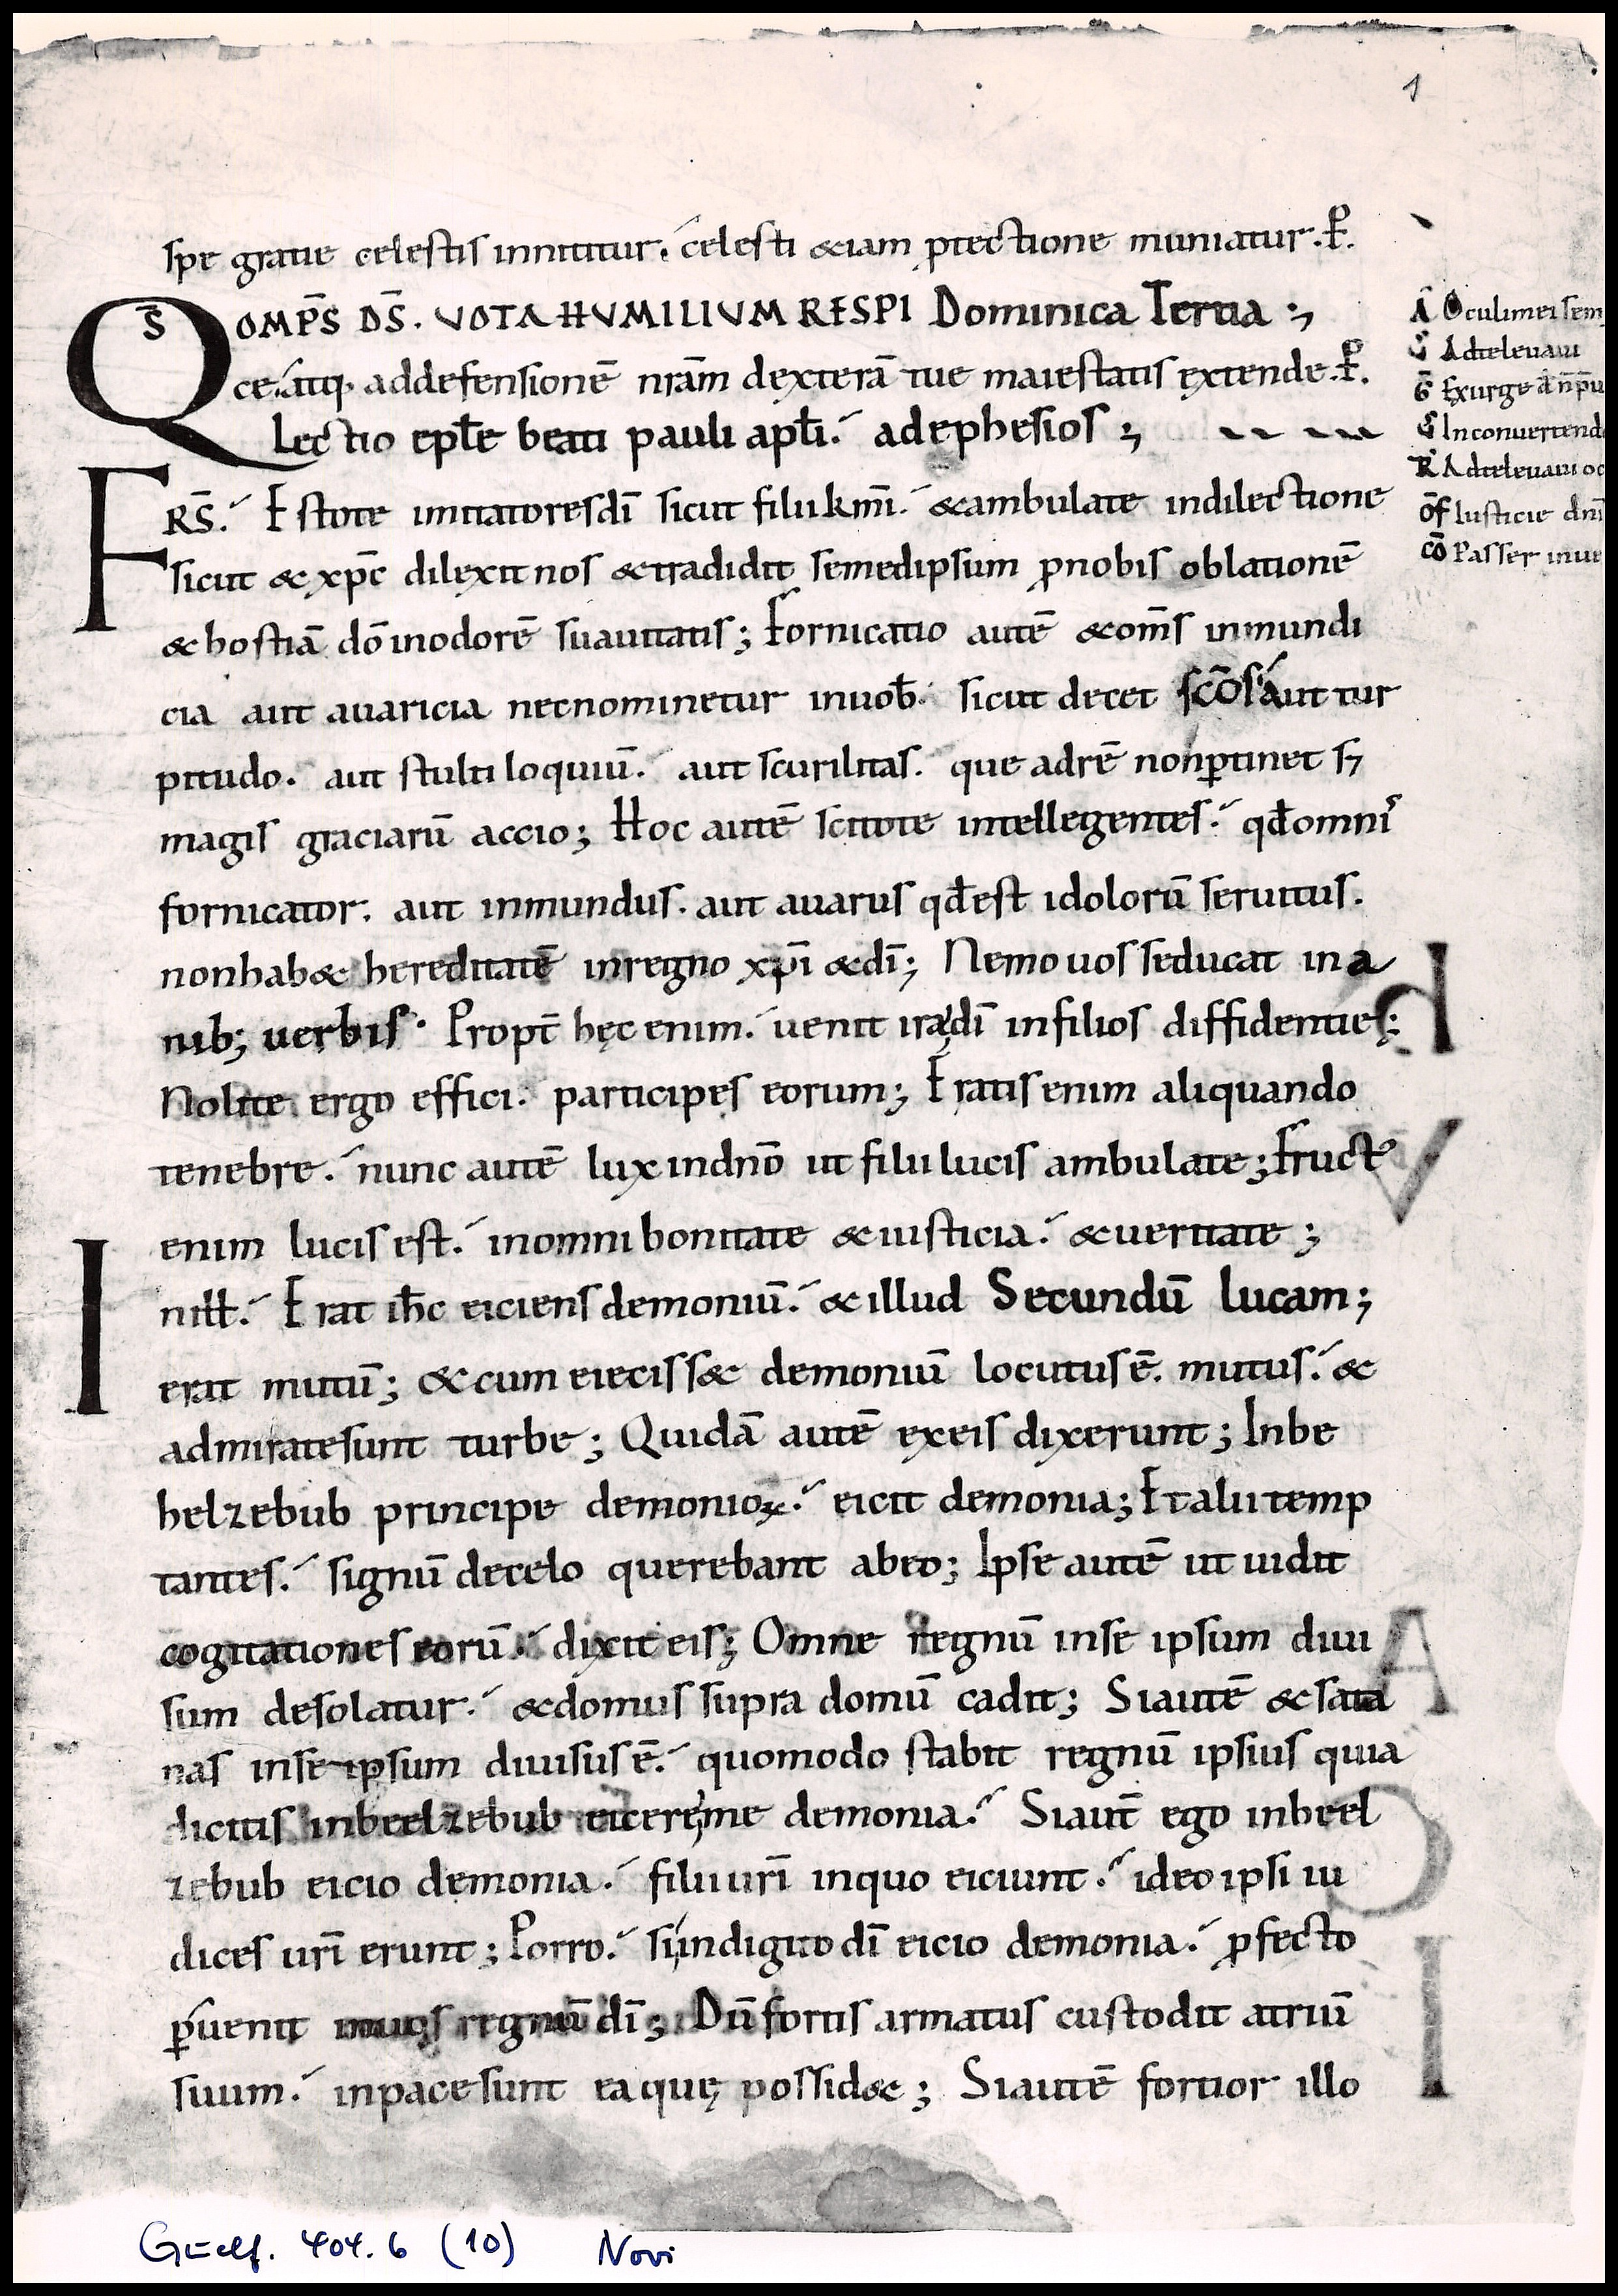 1
spe gratie celestis innititur. celesti &iam ꝓtectione muniatur. P̄.
QS̄ OMP̄S DS̄. VOTA HUMILIUM RESPI Dominica Tertia :,
ce. atq; addefensionē nr̄am dexterā tue maiestatis extende. P̄.
Lectio epl̄e beati pauli apl̄i. adephesios ;
FRS̄. Estote imitatoresdī sicut filii km̄i. &ambulate indilectione
sicut & xp̄c dilexit nos &tradidit semedipsum ꝓnobis oblationē
& hostiā dō inodorē suauitatis; Fornicatio autē &om̄s inmundi
cia aut auaricia necnominetur inuob̄. sicut decet sc̄os aut tur
pitudo. aut stulti loquiū. aut scurilitas. que adrē nonꝑtinet s;
magis graciarū accio; Hoc autē scitote intellegentes. qd̄omnis
fornicator. aut inmundus. aut auarus qd̄est idolorū seruitus.
nonhab& hereditatē inregno xp̄i &dī; Nemo uos seducat ina
nib; uerbis. Propt̄ hęc enim. uenit ira dī infilios diffidentię;
Nolite ergo effici. participes eorum; Eratis enim aliquando
tenebre. nunc autē lux indn̄o ut filii lucis ambulate; Fruct᾽
enim lucis est. inomni bonitate &iusticia. &ueritate ;
I nill̄. Erat ih̄c eiciens demoniū. & illud Secundū lucam;
erat mutū; &cum eieciss& demoniū locutus ē. mutus. &
admiratesunt turbe; Quidā autē exeis dixerunt; Inbe
helzebub principe demonioꝝ. eicit demonia; Etalii temp
tantes. signū decelo querebant abeo; Ipse autē ut uidit
cogitationes eorū. dixit eis; Omne regnū inse ipsum diui
sum desolatur. &domus supra domū cadit; Siautē &sata
nas inse ipsum diuisus ē. quomodo stabit regnū ipsius quia
dicitis inbeelzebub eicere me demonia. Siaut̄ ego inbeel
zebub eicio demonia. filii ur̄i inquo eiciunt. ideo ipsi iu
dices ur̄i erunt; Porro. si indigito dī eicio demonia. ꝓfecto
ꝑuenit inuos regnū dī; Dū fortis armatus custodit atriū
suum. inpace sunt ea quę possid&; Siautē fortior illo
Ā Oculi mei sem
Adteleuaui
Ḡ Exurge dn̄e
Inconuertend
R̄ Adteleuaui oc
OF̄ Iusticie dn̄i
CŌ Passer inue
Guelf. 404.6 (10) Novi